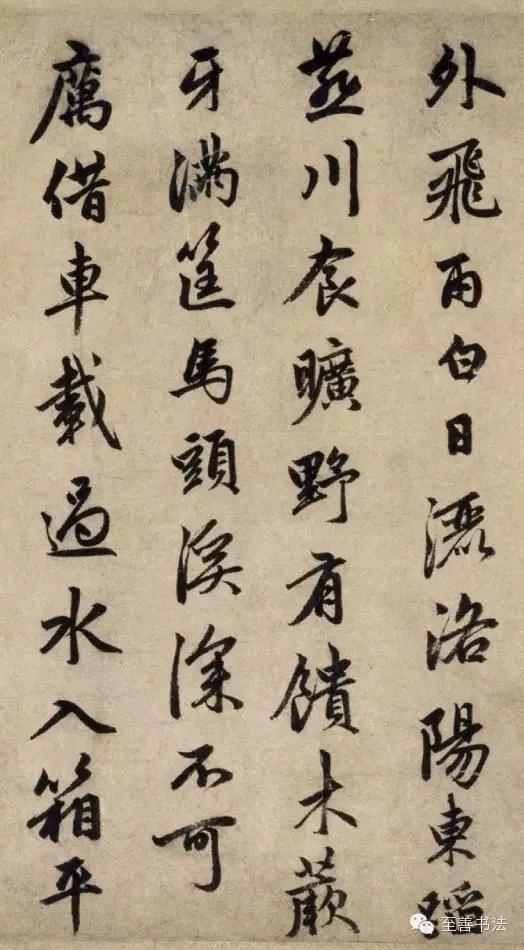 外飛雨白日灑洛陽東蹈
燕川食曠野有饋木蕨
牙滿筐馬頭溪深不可
厲借車載過水入箱平
至善书法